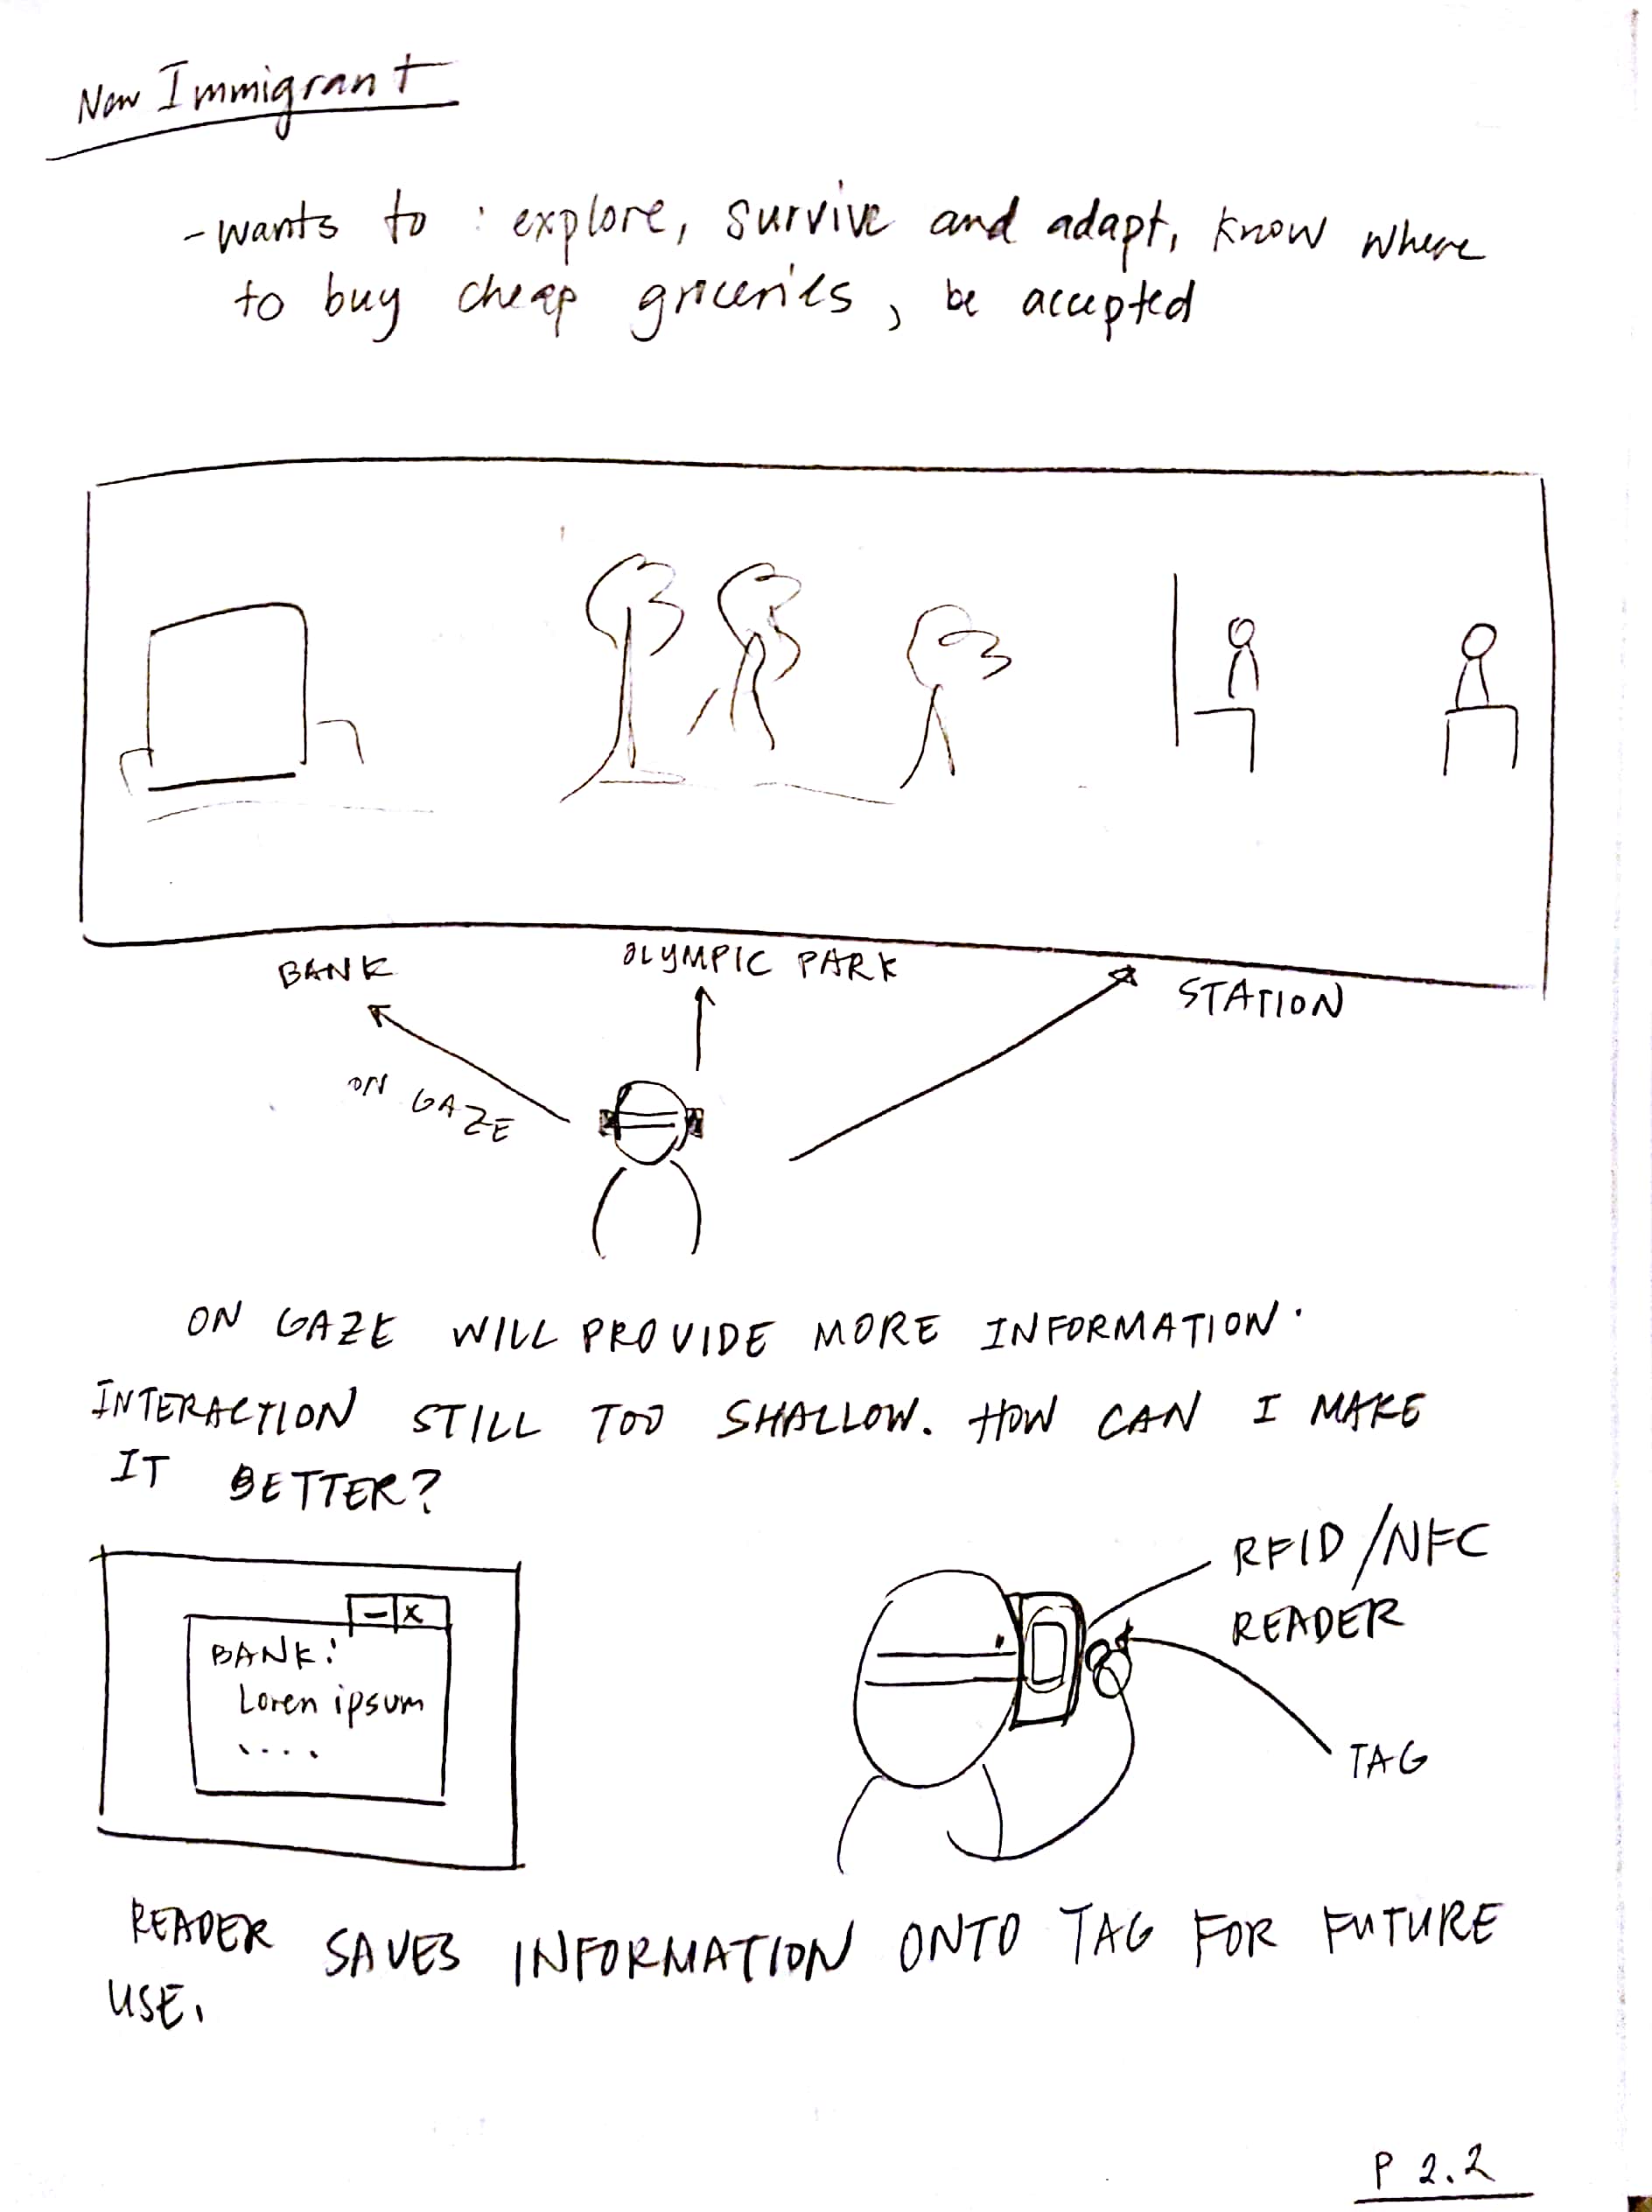 New Immigrant
- wants to : explore, survive and adapt, know where
to buy cheap groceries, be accepted
BANK
OLYMPIC PARK
STATION
ON GAZE
ON GAZE WILL PROVIDE MORE INFORMATION.
INTERACTION STILL TOO SHALLOW. HOW CAN I MAKE
IT BETTER?
RFID/NFC
READER
- x
BANK:
Loren ipsum
....
TAG
READER SAVES INFORMATION ONTO TAG FOR FUTURE
USE.
P 2.2